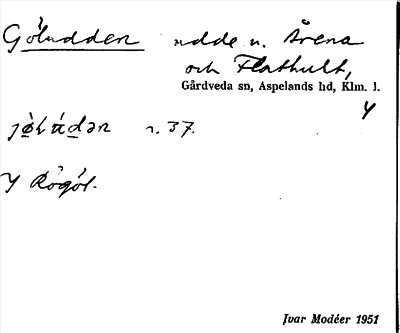 Göludden udde u. Årena
och Flathult,
Gårdveda sn, Aspelands hd, Klm. l.
r. 37.
Y Rögöl.
Ivar Modéer 1951